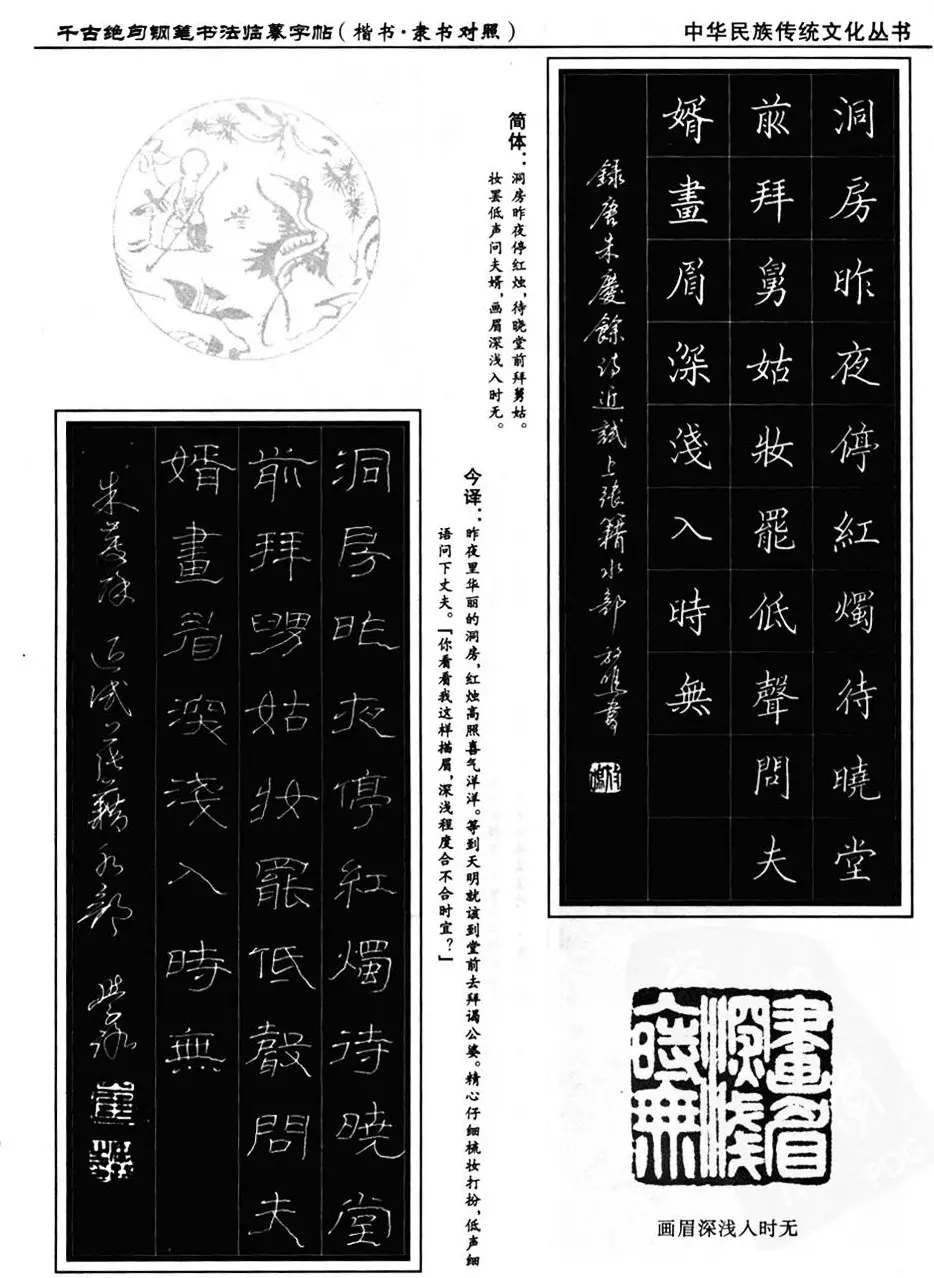 千古绝句钢笔书法临摹字帖(楷书·隶书对照)
中华民族传统文化丛书
洞房昨夜停紅燭待曉堂
前拜舅姑妝罷低聲問夫
婿畫眉深淺入時無
録唐朱慶餘詩近試上張籍水部
简体:洞房昨夜停红烛,待晓堂前拜舅姑。
妆罢低声问夫婿,画眉深浅入时无。
今译:昨夜里华丽的洞房,红烛高照喜气洋洋。等到天明就该到堂前去拜谒公婆。精心仔细梳妆打扮,低声细
语问下丈夫。「你看看我这样描眉,深浅程度合不合时宜?」
洞房昨夜停紅燭待曉堂
前拜舅姑妝罷低聲問夫
婿畫眉深淺入時無
朱慶餘近試上張籍水部
畫眉
深淺
入時無
画眉深浅入时无